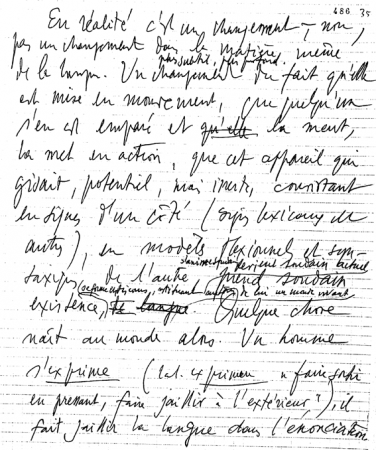 486 35
En réalité c'est un changement, – non,
pas un changement dans la matière même
plus subtil, plus profond.
de la langue. Un changement du fait qu'elle
est mise en mouvement, que quelqu'un
s'en est emparé et qu'elle la meut,
la met en action, que cet appareil qui
gisait, potentiel, mais inerte, consistant
en signes d'un côté (signes lexicaux de
autres), en modèles flexionnels et syn-
devient soudain actuel
taxiques de l'autre prend soudain
existence, de langue Quelque chose
naît au monde alors. Un homme
s'exprime (lat. exprimere "faire sortir
en pressant, faire jaillir à l'extérieur"), il
fait jaillir la langue dans l'énonciation